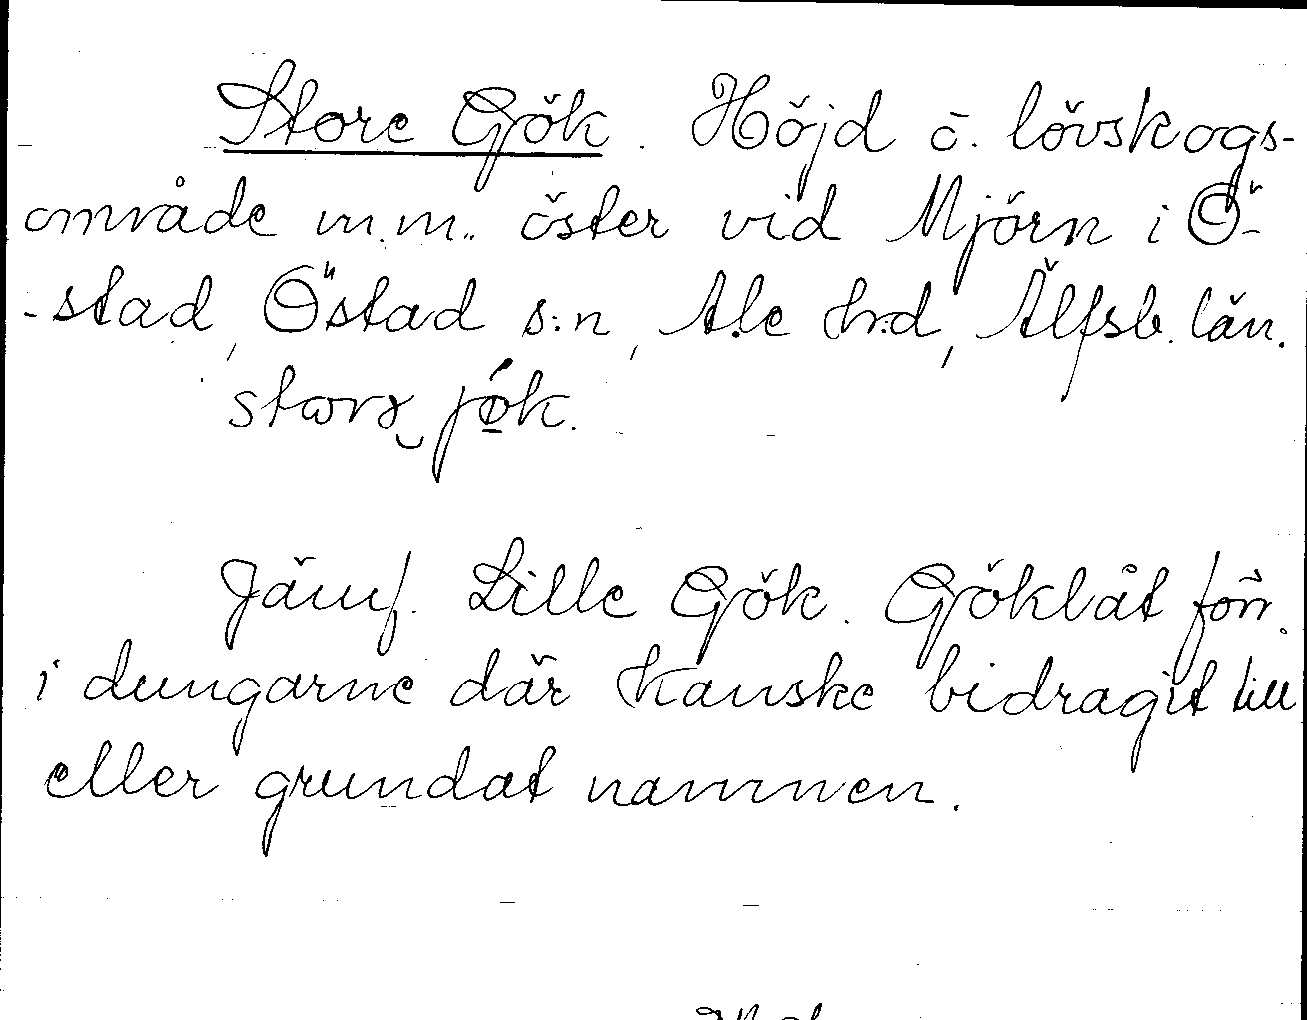 Store Gök. Höjd o. lövskogs-
område m.m. öster vid Mjörn i Ö-
-stad, Östad s:n, Ale h:d, Älfsb. län.
jǿk.
Jämf. Lille Gök. Göklåt förr.
i dungarne där kanske bidragit till
eller grundat namnen.